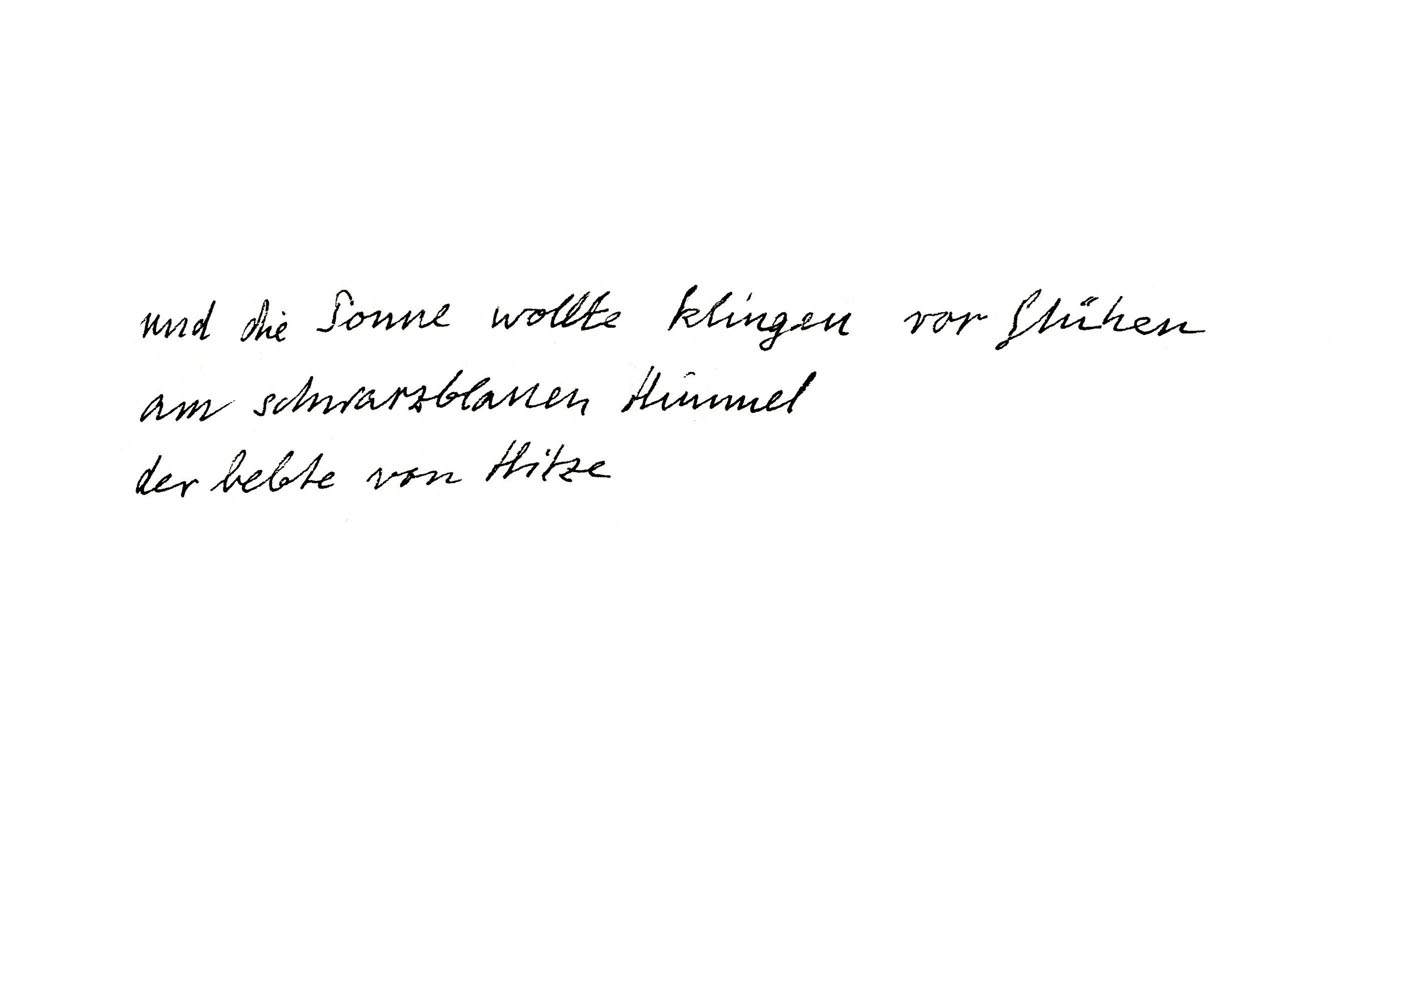 und die Sonne wollte klingen vor Glühen
am schwarzblauen Himmel
der bebte von Hitze